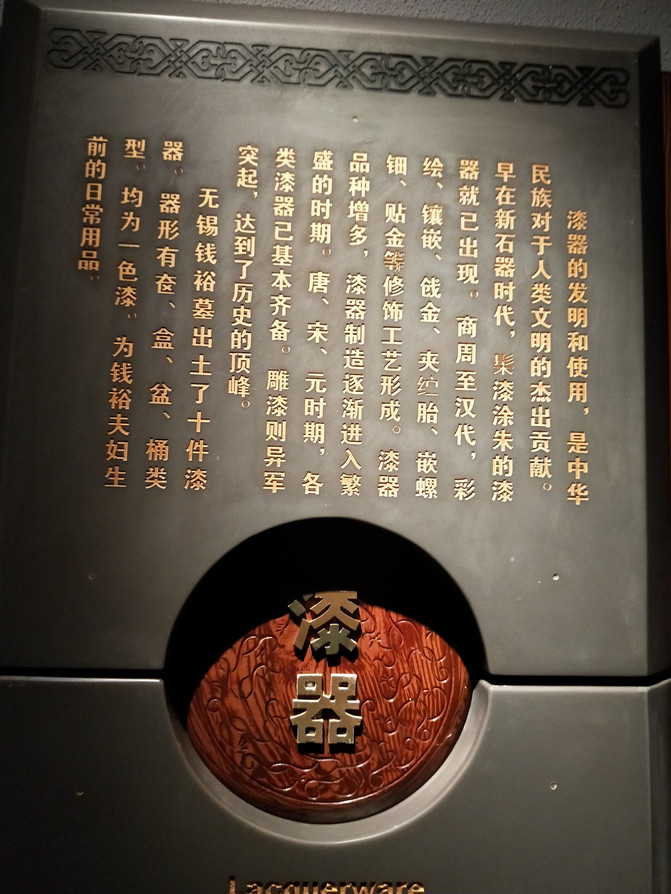 漆器的发明和使用，是中华
民族对于人类文明的杰出贡献。
早在新石器时代，髹漆涂朱的漆
器就已出现。商周至汉代，彩
绘、镶嵌、戗金、夹纻胎、嵌螺
钿、贴金等修饰工艺形成。漆器
品种增多，漆器制造逐渐进入繁
盛的时期。唐、宋、元时期，各
类漆器已基本齐备。雕漆则异军
突起，达到了历史的顶峰。
无锡钱裕墓出土了十件漆
器。器形有奁、盒、盆、桶类
型。均为一色漆。为钱裕夫妇生
前的日常用品。
漆
器
Lacquerware